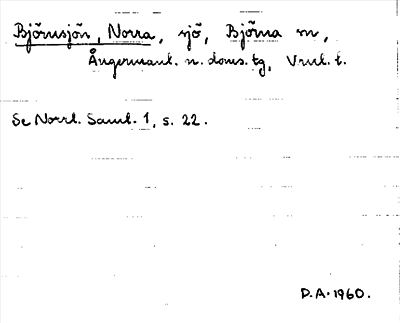 Björnsjön, Norra, sjö, Björna sn,
Ångermanl. n. doms. tg, Vnrl. l.
Se Norrl. Saml. 1, s. 22.
D.A. 1960.